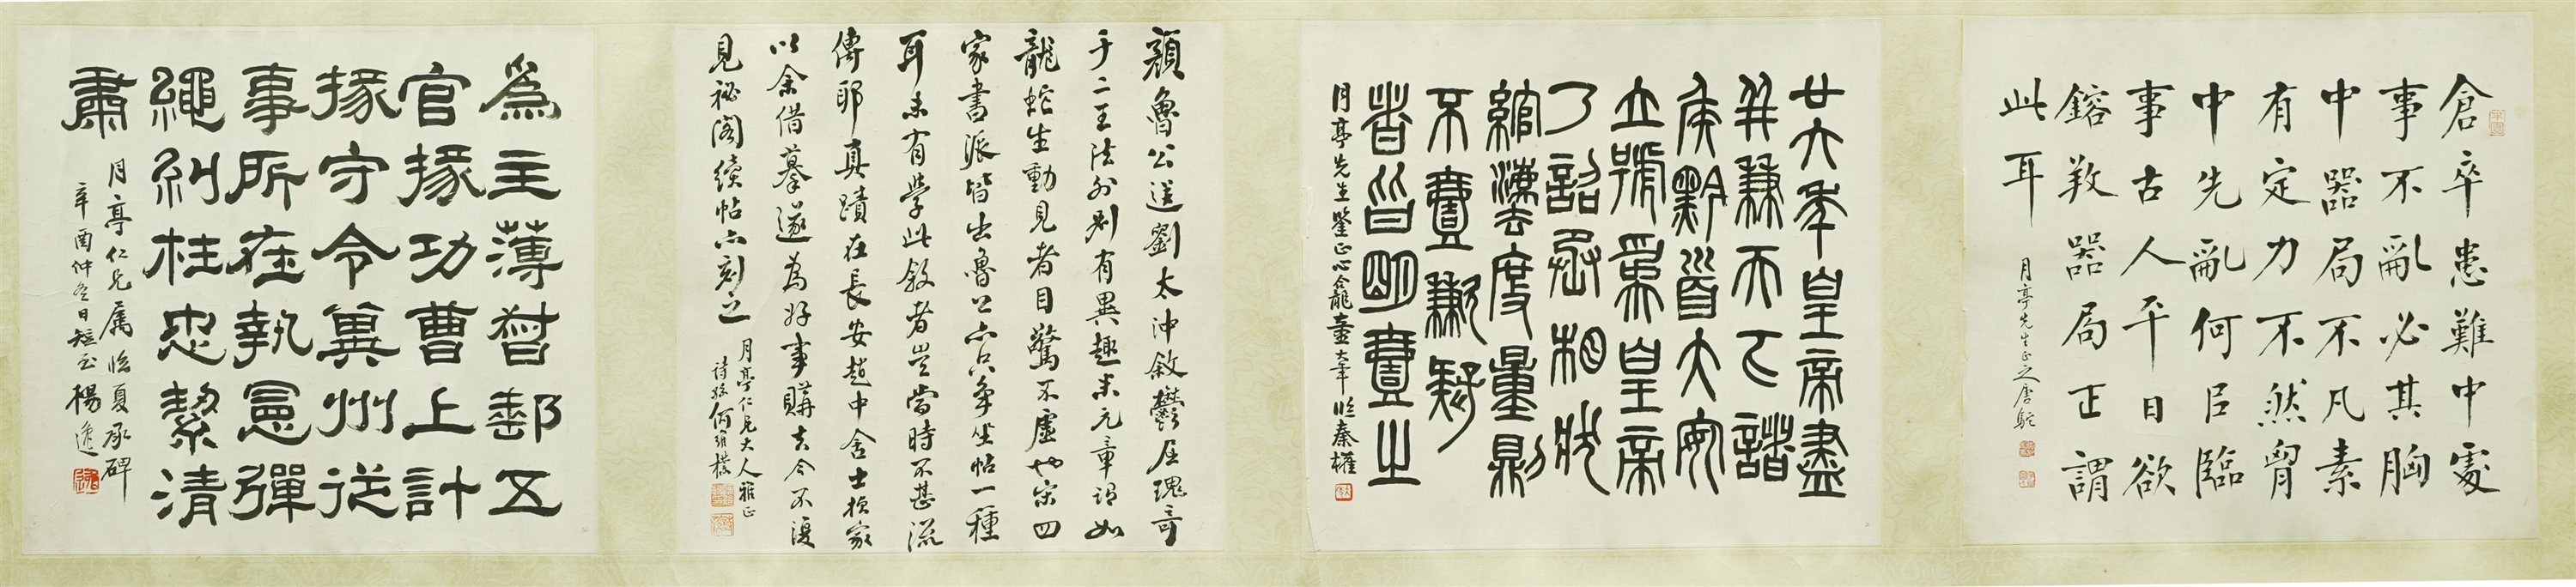 倉卒患難中處
事不亂必其胸
中器局不凡素
有定力不然胷
中先亂何㠯臨
事古人平日欲
鎔敎器局正謂
此耳
月亭先生正之唐駝
廿六年皇帝盡
并兼天下諸
矦黔首大安
立號爲皇帝
乃詔丞相狀
綰灋度量則
不壹歉疑
者皆明壹之
月亭先生鑒正心龕童大年臨秦權
顏魯公送劉太沖敘鬱屈瑰奇
于二王法外別有異趣米元章謂如
龍蛇生動見者目驚不虛也宋四
家書派皆出魯公亦只爭坐帖一種
耳未有學此敘者豈當時不甚流
傳耶真蹟在長安趙中舍士禎家
以余借摹遂爲好事購去今不復
見祕閣續帖亦刻之
月亭仁兄大人雅正
詩孫何維樸
爲主薄督郵五
官掾功曹上計
掾守令冀州從
事所在執憲彈
繩糾枉忠絜清
肅
月亭仁兄屬臨夏承碑
辛酉仲冬日短至楊逸